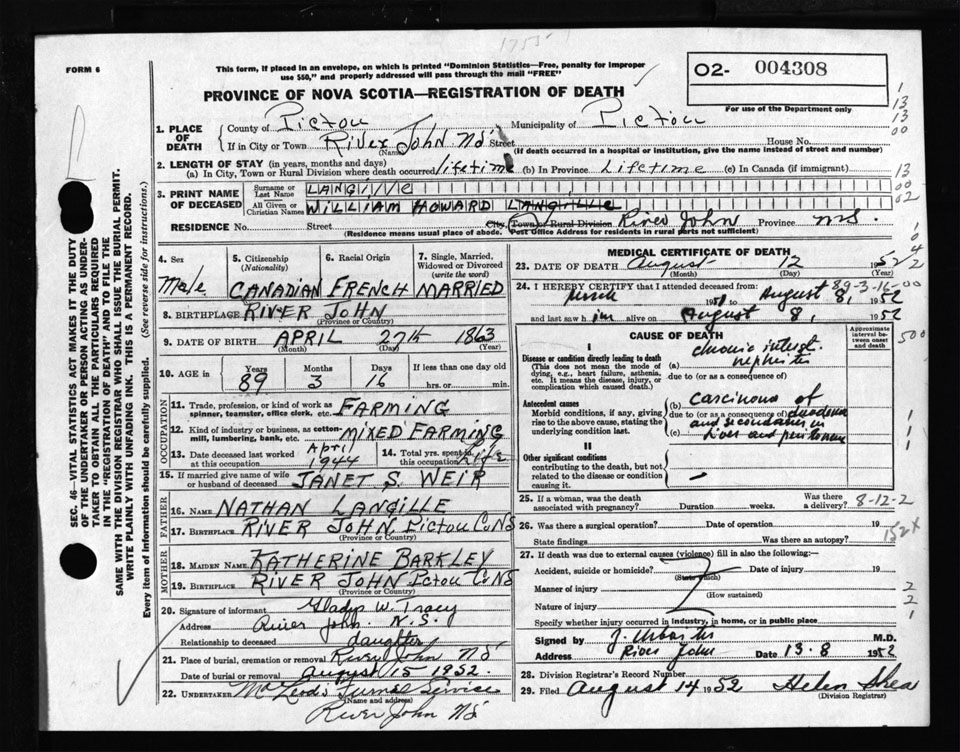 FORM 6
This form, if placed in an envelope, on which is printed "Dominion Statistics—Free, penalty for improper
use $50," and properly addressed will pass through the mail "FREE"
O2- 004308
For use of the Department only
PROVINCE OF NOVA SCOTIA—REGISTRATION OF DEATH
1. PLACE OF DEATH
County of Pictou Municipality of Pictou
If in City or Town River John NS Street House No.
(Name) (If death occurred in a hospital or institution, give the name instead of street and number)
2. LENGTH OF STAY (in years, months and days)
(a) In City, Town or Rural Division where death occurred lifetime (b) In Province Lifetime (c) In Canada (if immigrant)
3. PRINT NAME OF DECEASED
Surname or Last Name LANGILLE
All Given or Christian Names WILLIAM HOWARD LANGILLE
RESIDENCE No. Street City, Town or Rural Division River John Province N.S.
(Residence means usual place of abode. Post Office Address for residents in rural parts not sufficient)
4. Sex Male
5. Citizenship (Nationality) CANADIAN
6. Racial Origin FRENCH
7. Single, Married, Widowed or Divorced (write the word) MARRIED
8. BIRTHPLACE RIVER JOHN
(Province or Country)
9. DATE OF BIRTH APRIL 27th 1863
(Month) (Day) (Year)
10. AGE in Years 89 Months 3 Days 16 If less than one day old hrs. or min.
OCCUPATION
11. Trade, profession, or kind of work as spinner, teamster, office clerk, etc. FARMING
12. Kind of industry or business, as cotton-mill, lumbering, bank, etc. MIXED FARMING
13. Date deceased last worked at this occupation April 1944
14. Total yrs. spent in this occupation Life
15. If married give name of wife or husband of deceased JANET S. WEIR
FATHER
16. Name NATHAN LANGILLE
17. Birthplace RIVER JOHN Pictou Co NS
(Province or Country)
MOTHER
18. Maiden Name KATHERINE BARKLEY
19. Birthplace RIVER JOHN Pctou Co NS
(Province or Country)
20. Signature of informant Gladys W. Tracy
Address River John N.S.
Relationship to deceased daughter
21. Place of burial, cremation or removal River John NS
Date of burial or removal August 15 1952
22. Undertaker McLeod's Funeral Service
(Name and address)
River John NS
MEDICAL CERTIFICATE OF DEATH
23. DATE OF DEATH August 12 1952
(Month) (Day) (Year)
89-3-16-00
24. I HEREBY CERTIFY that I attended deceased from:
1951 to August 8, 1952
and last saw him alive on August 8, 1952
CAUSE OF DEATH
Approximate interval between onset and death
I
Disease or condition directly leading to death
(This does not mean the mode of dying, e.g., heart failure, asthenia, etc. It means the disease, injury, or complication which caused death.)
(a) chronic interst. nephritis
due to (or as a consequence of)
Antecedent causes
Morbid conditions, if any, giving rise to the above cause, stating the underlying condition last.
(b) carcinoma of
due to (or as a consequence of) duodenum
(c) and secondaries in liver and peritoneum
II
Other significant conditions
contributing to the death, but not related to the disease or condition causing it.
25. If a woman, was the death associated with pregnancy? Duration weeks. Was there a delivery?
8-12-2
26. Was there a surgical operation? Date of operation 19
State findings Was there an autopsy?
27. If death was due to external causes (violence) fill in also the following:—
Accident, suicide or homicide? (State which) Date of injury 19
Manner of injury
(How sustained)
Nature of injury
Specify whether injury occurred in industry, in home, or in public place
Signed by M.D.
Address River John Date 13.8 1952
28. Division Registrar's Record Number
29. Filed August 14 1952 Helen Shea
(Division Registrar)
SEC. 46—VITAL STATISTICS ACT MAKES IT THE DUTY
OF THE UNDERTAKER OR PERSON ACTING AS UNDER-
TAKER TO OBTAIN ALL THE PARTICULARS REQUIRED
IN THE "REGISTRATION OF DEATH" AND TO FILE THE
SAME WITH THE DIVISION REGISTRAR WHO SHALL ISSUE THE BURIAL PERMIT.
WRITE PLAINLY WITH UNFADING INK. THIS IS A PERMANENT RECORD.
Every item of information should be carefully supplied. (See reverse side for instructions.)